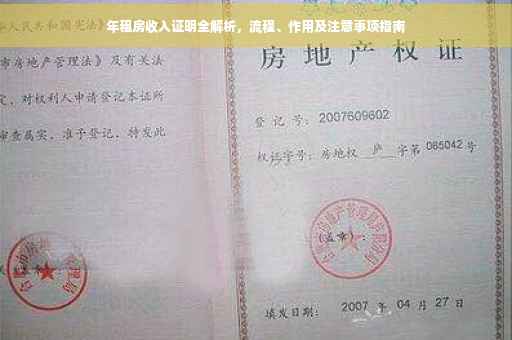 年租房收入证明全解析，流程、作用及注意事项指南
人民共和国宪法》
市房地产管理法》及有关法
定，对权利人申请登记本证所
审查属实，准予登记，特发此
房地产权证
登 记 号：2007609602
权证字号：房地权 庐 字第 085042 号
（盖章）：
填发日期：2007 年 04 月 27 日